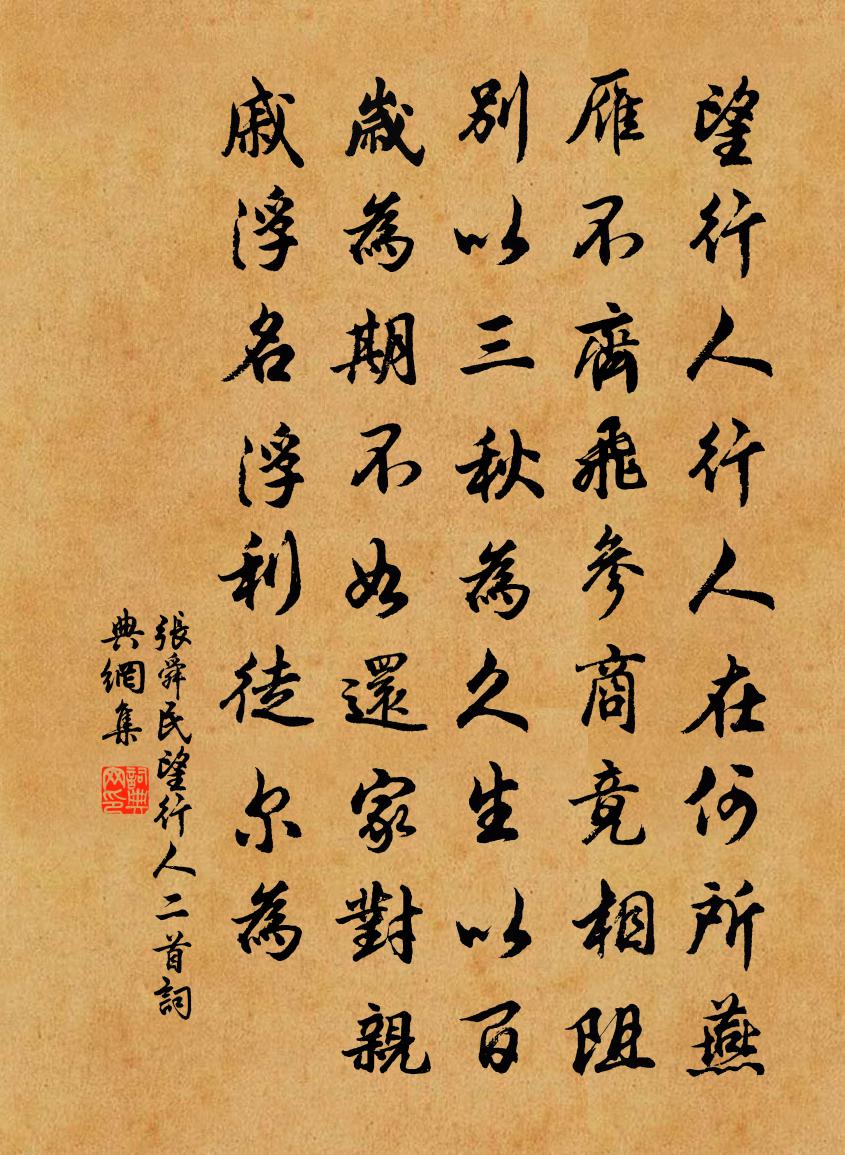 望行人行人在何所燕
雁不齊飛參商竟相阻
別以三秋為久生以百
歲為期不如還家對親
戚浮名浮利徒尔為
張舜民望行人二首詞
典網集
詞典網印